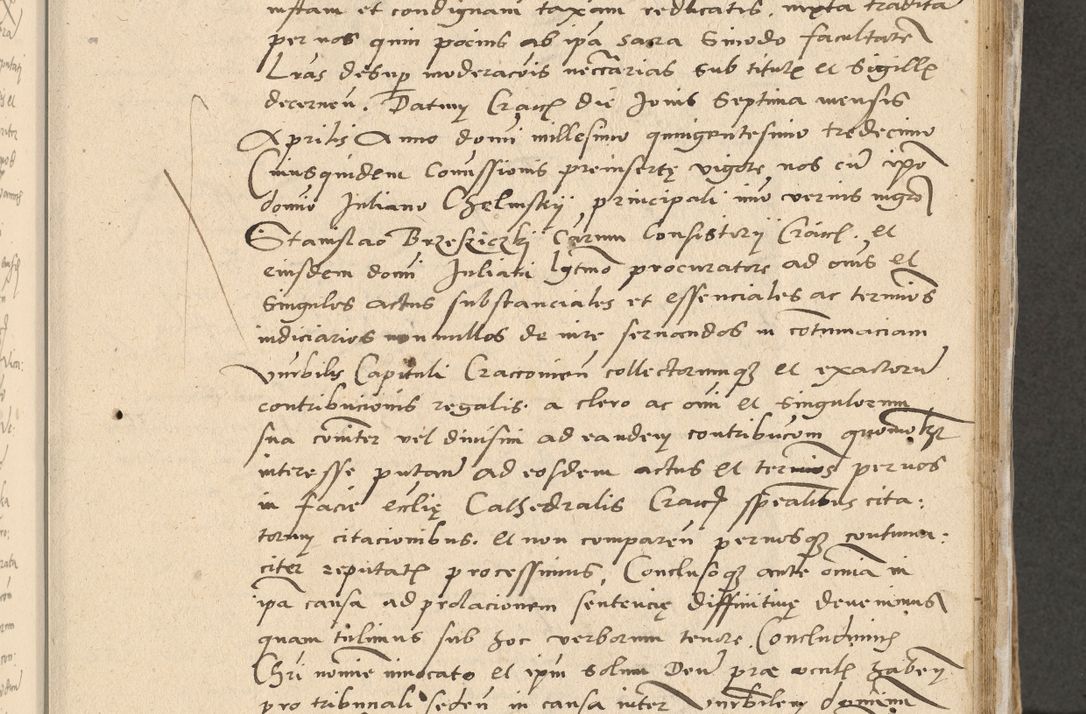 iustam et condignam taxam reducatis, iuxta tradita
per nos quin pocius ab ipa sacra Sinodo facultate
Lras desup moderacois neccarias sub titulo et Sigillo
decernen. Datum Cracoe die Jovis Septima mensis
Aprilis Anno domi millesimo quingentesimo tredecimo
Cuiusquidem Comissionis preinserte vigore nos cu ipo
domio Juliano Chelmskij, principali imo verius mgro
Stanislao Brzesziczkj Carum Consistorij Cracoe. et
eiusdem domi Juliani lgtmo procuratore ad oms et
singulos actus substanciales et essenciales ac termios
iudiciarios nonnullos de iure servandos in cotumaciam
vnrbilis Capituli Cracovien collectorumq et exactoru
contribucionis regalis. a clero ac omi et singulorum
sua comiter vel divisim ad eandem contribucom quomolt
interesse putan ad eosdem actus et termios per nos
in facie ecclie Cathedralis Cracoe spealibus cita:
torum citacionibus. et non comparen per nosq contuma:
citer reputat processimus, Conclusoq ante omia in
ipa causa ad prolacionem sentencie diffinitive devenimus
quam tulimus sub hoc verborum tenore. Concludimus
Chri nomie invocato et ipm solum Deu præ oculis haben
pro tribunali seden in causa inter vnrbilem dominum